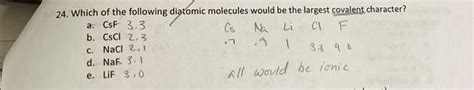 24. Which of the following diatomic molecules would be the largest covalent character?
a. CsF 3.3 Cs Na Li Cl F
b. CsCl 2.3 .7 .9 1 3.0 4.0
c. NaCl 2.1
d. NaF 3.1
e. LiF 3.0 all would be ionic